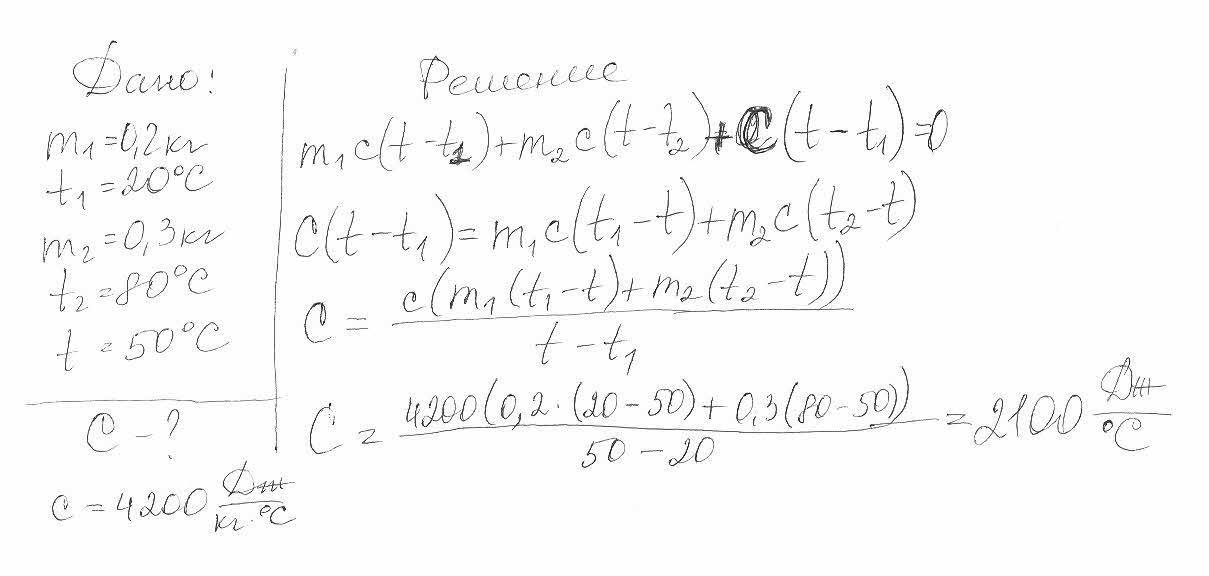 Дано:
m₁=0,2кг
t₁=20°C
m₂=0,3кг
t₂=80°C
t=50°C
C-?
c=4200 Дж/кг·°C
Решение
m₁c(t-t₁)+m₂c(t-t₂)+C(t-t₁)=0
C(t-t₁)=m₁c(t₁-t)+m₂c(t₂-t)
C=c(m₁(t₁-t)+m₂(t₂-t))/t-t₁
C=4200(0,2·(20-50)+0,3(80-50))/50-20=2100 Дж/°C